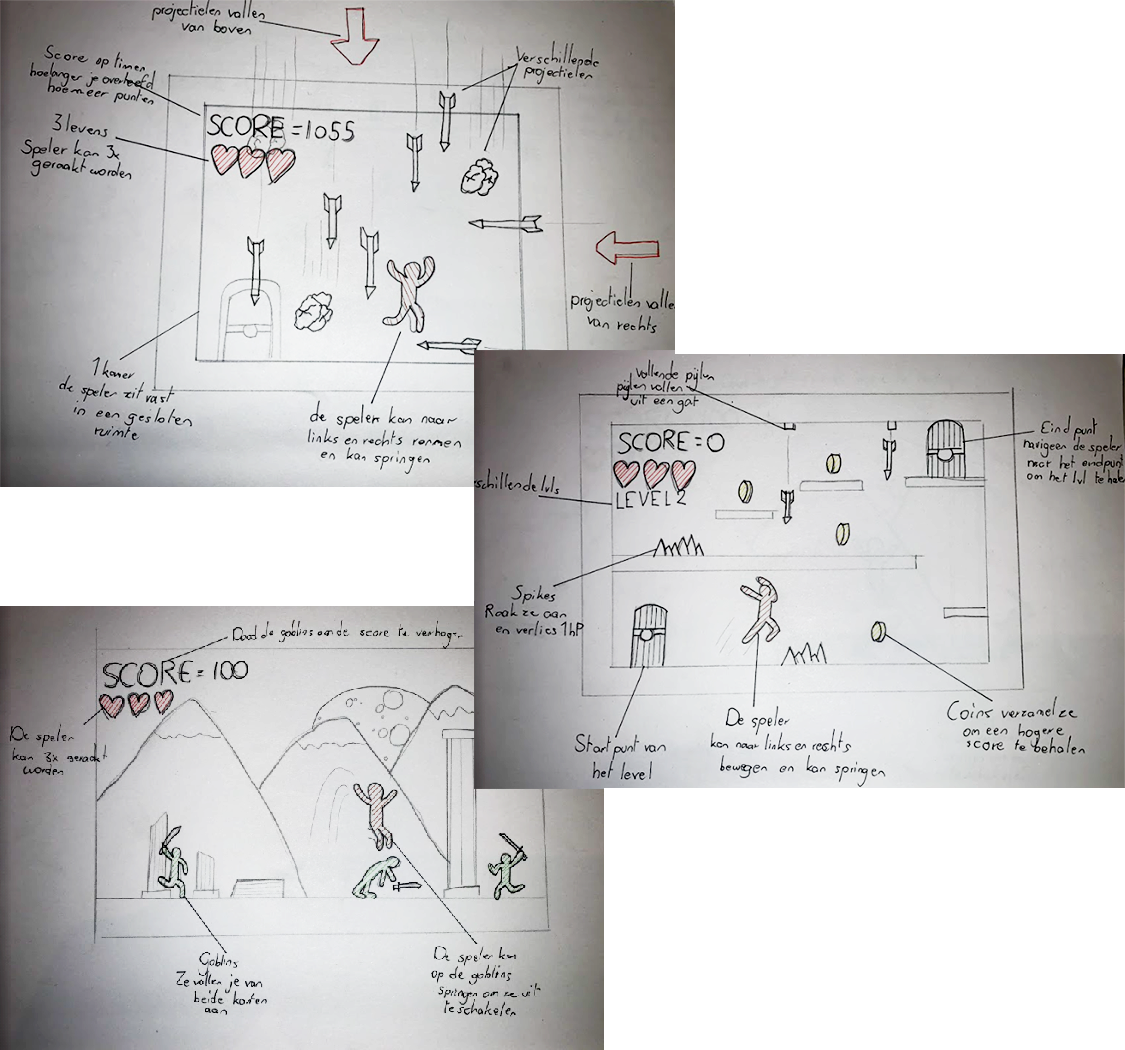 projectielen vallen
van boven
Score op timer
hoelanger je overleefd
hoe meer punten
3 levens
Speler kan 3x
geraakt worden
Verschillende
projectielen
SCORE = 1055
projectielen valle
van rechts
1 kamer
de speler zit vast
in een gesloten
ruimte
de speler kan naar
links en rechts rennen
en kan springen
vallende pijlen
pijlen vallen
uit een gat
SCORE = 0
LEVEL 2
schillende lvls
Eind punt
navigeer de speler
naar het eindpunt
om het lvl te hale
Spikes
Raak ze aan
en verlies 1 hP
Startpunt van
het level
De speler
kan naar links en rechts
bewegen en kan springen
Coins verzamel ze
om een hogere
score te behalen
Dood de goblins om de score te verhoge
SCORE = 100
De speler
kan 3x geraakt
worden
Goblins
Ze vallen je van
beide kanten
aan
De speler kan
op de goblins
springen om ze uit
te schakelen